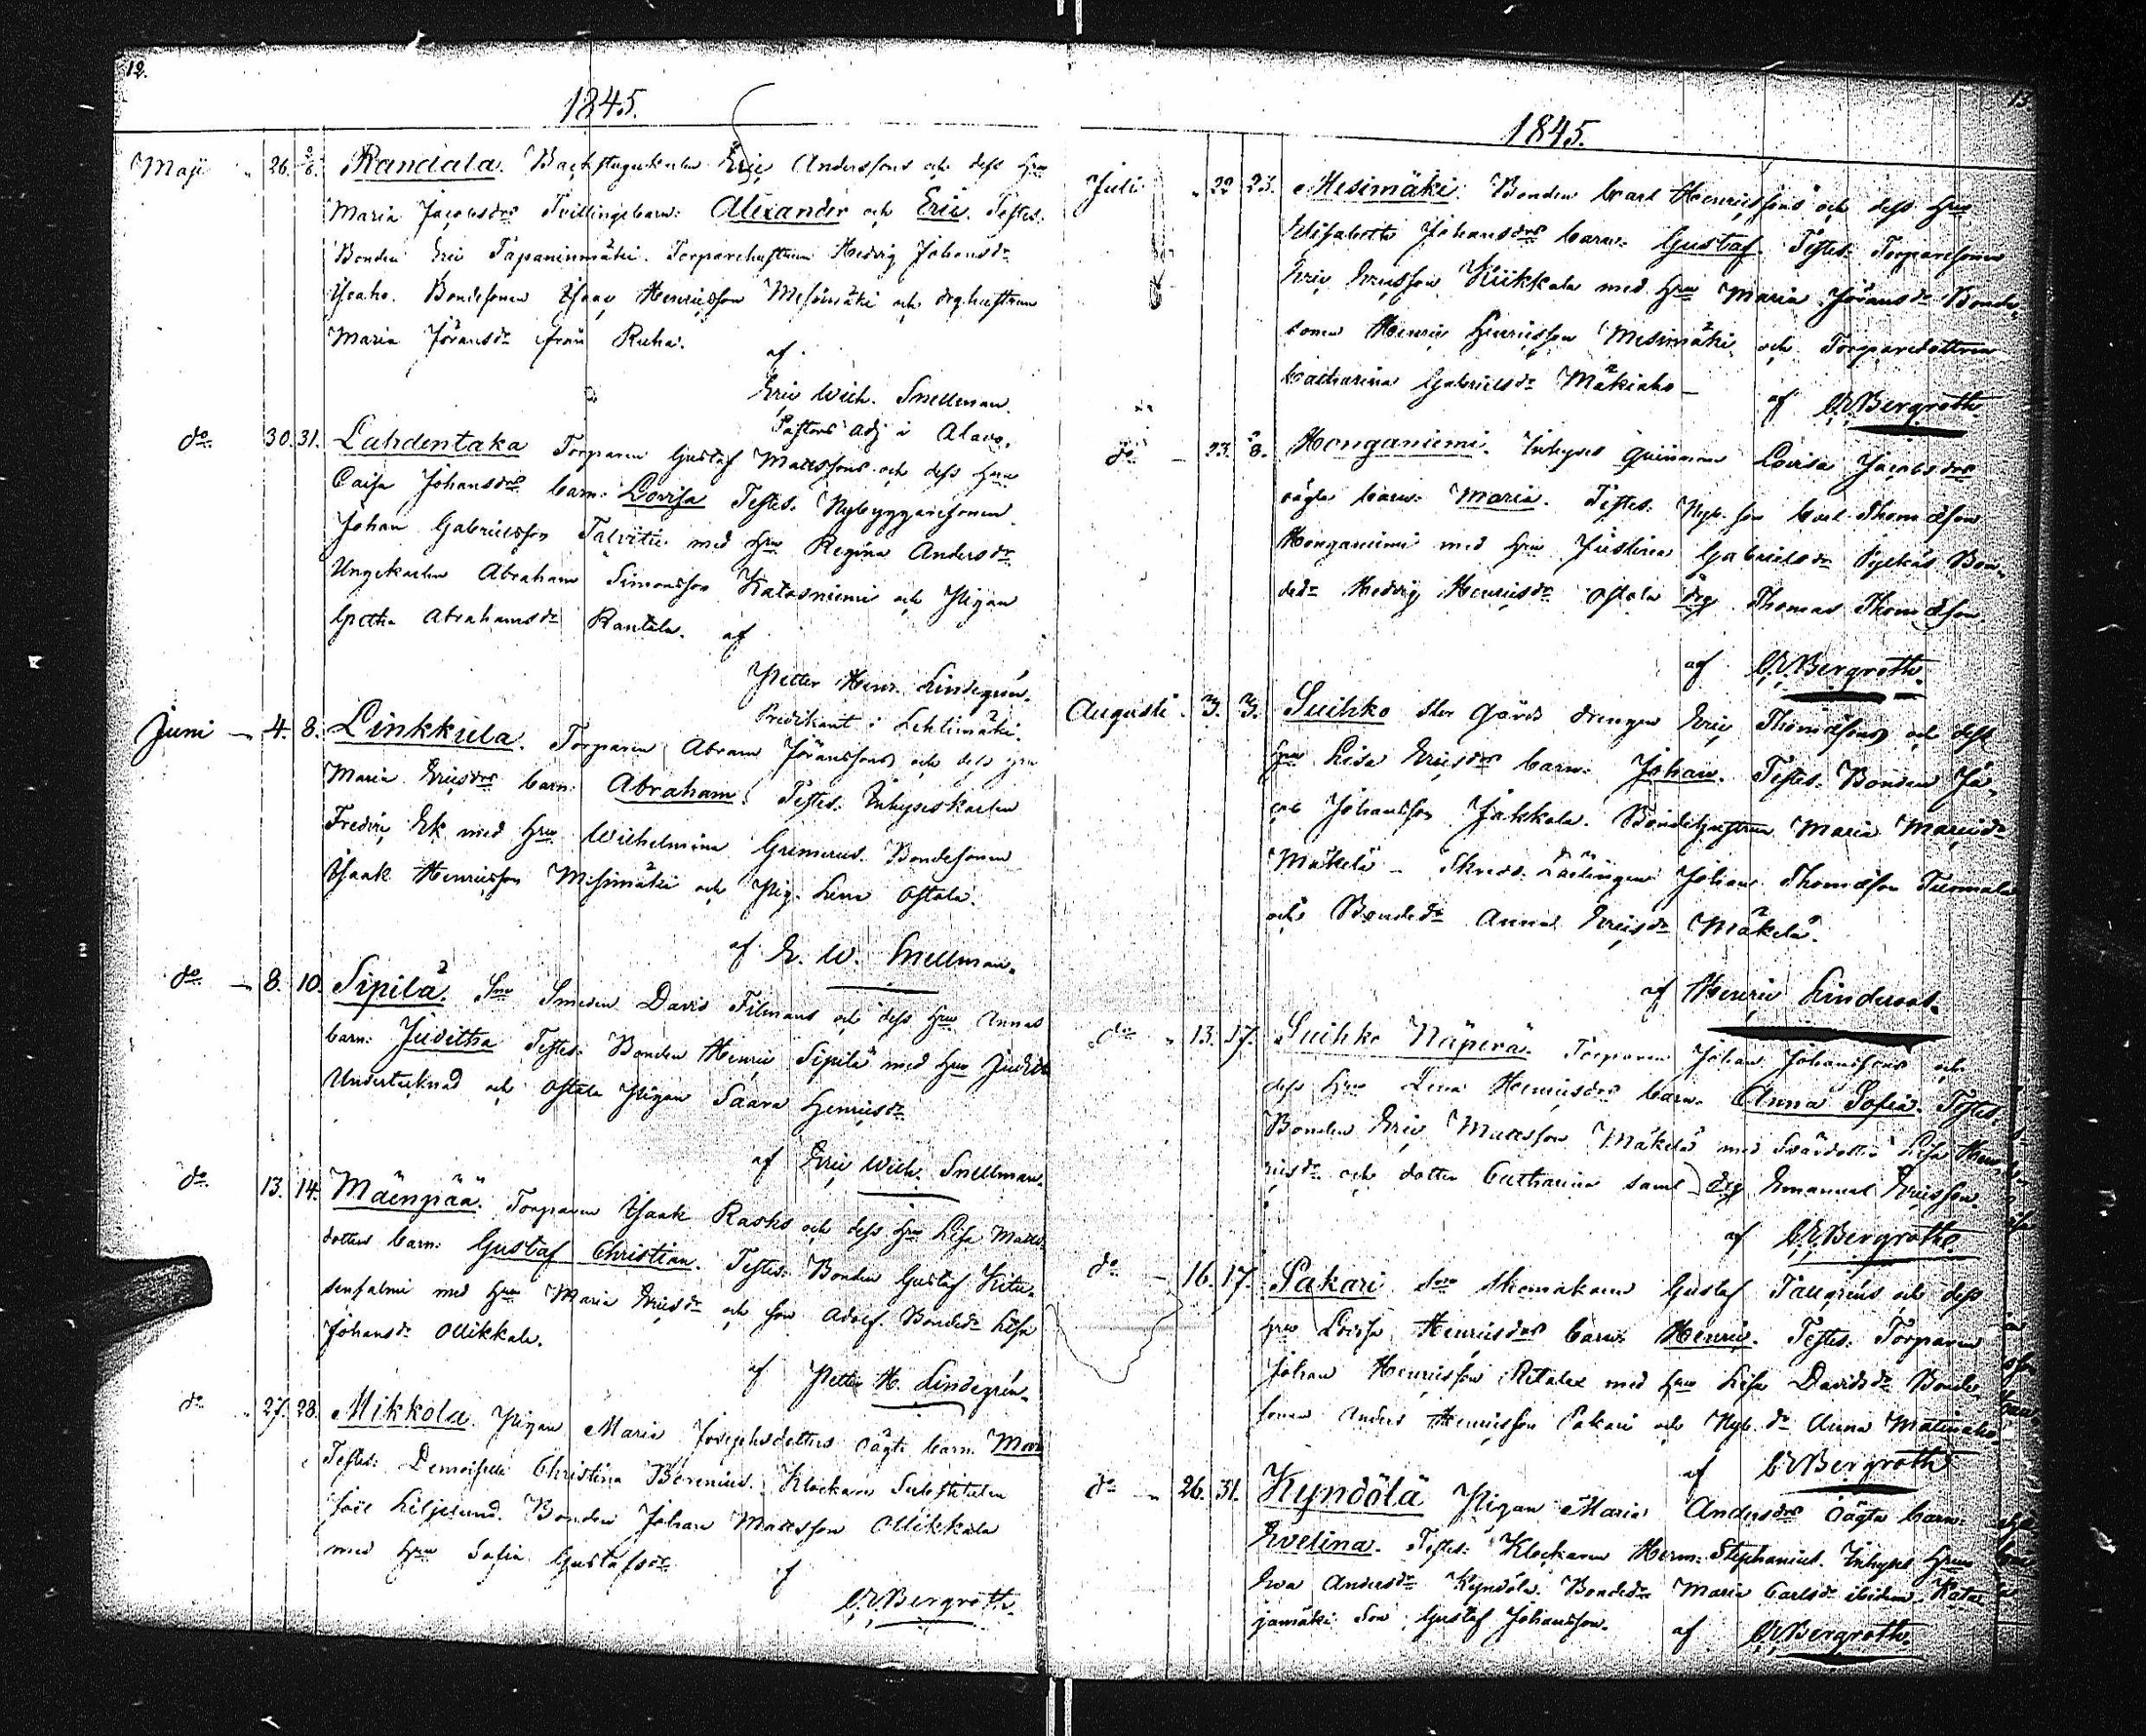 12.
1845.
Maji 26. 2/6. Randala. Backstugukarlen Eric Anderssons och dess Hru
Maria Jacobsdrs Tvillingebarn: Alexander och Eric. Testes:
Bonden Eric Tapaninmäki. Torparehustrun Hedvig Johansdr
Bondesonen Isaac Henricsson Mesimäki och drg:hustrun
Maria Jöransdr från Ruha.
af
Eric Wilh. Snellman.
Pastors adj i Alavo.
do 30. 31. Lahdentaka Torparen Gustaf Mattssons och dess Hru
Caisa Johansdrs barn: Lovisa Testes. Nybyggaresonen
Johan Gabrielsson Talvitie med Hru Regina Andersdr
Ungekarlen Abraham Simonsson Katasniemi och Pigan
Greta Abrahamsdr Rantala. af
Petter Henr. Lindegrén.
Predikant i Lehtimäki.
Juni 4. 8. Linkkula. Torparen Abram Jöranssons och dess Hru
Maria Ericsdrs barn: Abraham. Testes. Inhyseskarlen
Fredric Ek med Hru Wilhelmina Grimerus. Bondesonen
Isaak Henricsson Mesimäki och Pig. Lena Ostala.
af E. W. Snellman.
do 8. 10. Sipilä. Sme Smeden David Tilmans och dess Hru Annas
barn: Juditha Testes: Bonden Henric Sipilä med Hru Judith
Undertecknad och Ostala Pigan Saara Henricsdr
af Eric Wilh. Snellman.
do 13. 14. Mäenpää. Torparen Isaak Rasks och dess Hru Lisa Matts-
dotters barn: Gustaf Christian. Testes: Bonden Gustaf Kitu-
sensalmi med Hru Maria Ericsdr och son Adolf. Bondedr Lisa
Johansdr Ollikkala.
af Petter H. Lindegrén.
do 27. 28. Mikkola. Pigan Maria Josephsdotters oägta barn.
Testes: Demoiselle Christina Berenius. Klockare Substituten
Liljelund. Bonden Johan Mattsson Ollikkala
med Hru Sofia Gustafsdr
af
C. E. Bergroth.
13.
1845.
Juli 22 23. Mesimäki. Bonden Carl Henricssons och dess Hru
Elisabeth Johansdrs barn: Gustaf. Testes: Torparesonen
Eric Ericsson Kiikkala med Hru Maria Jöransdr Bonde-
sonen Henric Henricsson Mesimäki, och Torparedottren
Catharina Gabrielsdr Mäkiaho
af C. E. Bergroth.
do 23. Honganiemi. Inhyses qvinnan Lovisa Jacobsdrs
oägta barn: Maria. Testes. Nyb. son Carl Thomasson
Honganiemi med Hru Justina Gabrielsdr Bon-
dedr Hedvig Henricsdr Ostala drg Thomas Thomasson.
af C. E. Bergroth.
Augusti. 3. 3. Suihko Gårds drengen Eric Thomassons och dess
Hru Lisa Ericsdrs barn: Johan. Testes: Bonden Ja-
cob Johansson Jakkola. Bondehustrun Maria
Mäkelä Skredd. Lärlingen Johan Thomasson Tuomala
och Bondedr Anna Ericsdr Mäkelä.
af Henric Linderoos.
do 13. 17. Suihko Näperä. Torparen Johan Johanssons och
dess Hru Lena Henricsdrs barn. Anna Sofia. Testes.
Bonden Eric Mattsson Mäkelä med Svärdotter Lisa Hen-
ricsdr och dotter Catharina samt drg Emanuel Ericsson.
af C. E. Bergroth.
do 16. 17. Pakari Skomakaren Gustaf Tallgréns och dess
Hru Lovisa Henricsdrs barn: Henric. Testes: Torparen
Johan Henricsson Ritala med Hru Lisa Davidsdr Bonde-
sonen Anders Henricsson Pakari och Nyb. dr Anna Matinaho.
af C. E. Bergroth
do 26. 31. Kyndölä Pigan Maria Andersdrs oägta barn:
Evelina. Testes: Klockaren Herm: Stephanius. Inhyses Hru
Eva Andersdr Kyndölä. Bondedr Maria Carlsdr ibidem. Kata-
jamäki Son Gustaf Johansson. af C. E. Bergroth.